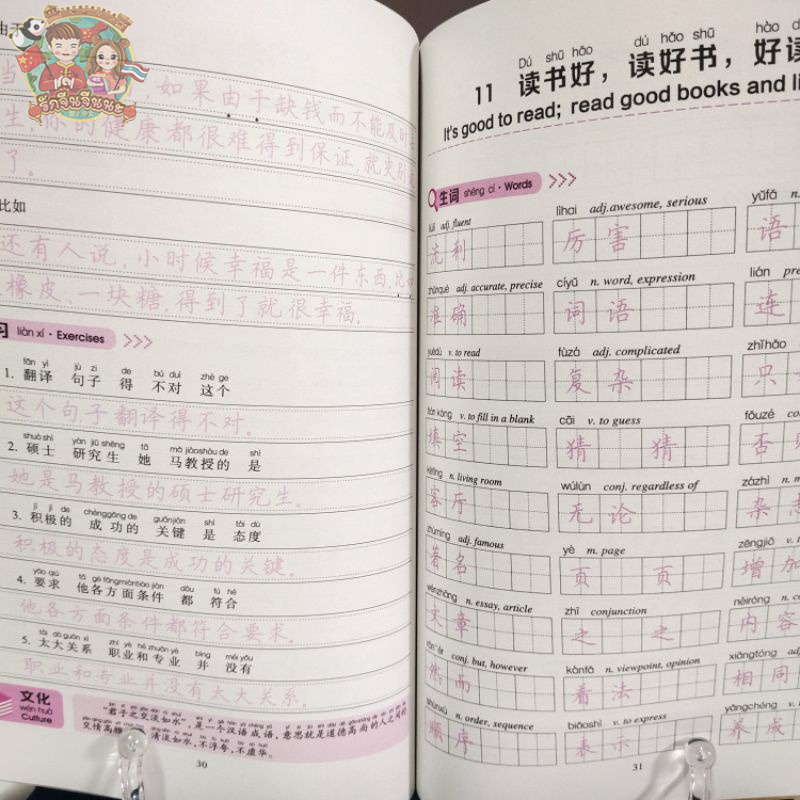 由于
当
如果由于缺钱而不能及时
生，你的健康都很难得到保证，就更别
了。
比如
还有人说，小时候幸福是一件东西，比如
橡皮、一块糖，得到了就很幸福。
习 liàn xí · Exercises
fān yì jù zi de bú duì zhè ge
1. 翻译 句子 得 不对 这个
这个句子翻译得不对。
shuò shì yán jiū shēng tā mǎ jiàoshòu de shì
2. 硕士 研究生 她 马教授的 是
她是马教授的硕士研究生。
jī jí de chénggōng de guānjiàn shì tài dù
3. 积极的 成功的 关键 是 态度
积极的态度是成功的关键。
yāo qiú tā gè fāngmiàntiáojiàn dōu fú hé
4. 要求 他各方面条件 都 符合
他各方面条件都符合要求。
tài dà guān xì zhí yè hé zhuān yè bìng méi yǒu
5. 太大关系 职业和专业 并 没有
职业和专业并没有太大关系。
文化
wén huà
Culture
“君子之交淡如水”，是一个汉语成语，意思就是道德高尚的人之间的
交情高
清淡如水，不浮夸，不虚华。
30
รักจีนจีนนะ
Dú shū hǎo dú hǎo shū hào
11 读书好，读好书，好读
It's good to read; read good books and li
生词 shēng cí · Words
liúlì adj. fluent
流利
lìhai adj. awesome, serious
厉害
yǔfǎ n.
语
zhǔnquè adj. accurate, precise
准确
cíyǔ n. word, expression
词语
lián pre
连
yuèdú v. to read
阅读
fùzá adj. complicated
复杂
zhǐhǎo
只
tián kòng v. to fill in a blank
填空
cāi v. to guess
猜 猜
fǒuzé con
否
kètīng n. living room
客厅
wúlùn conj. regardless of
无论
zázhì n. m
杂志
zhùmíng adj. famous
著名
yè m. page
页 页
zēngjiā v. t
增加
wénzhāng n. essay, article
文章
zhī conjunction
之 之
nèiróng n. co
内容
rán'ér conj. but, however
然而
kànfǎ n. viewpoint, opinion
看法
xiāngtóng adj.
相同
shùnxù n. order, sequence
顺序
biǎoshì v. to express
表示
yǎngchéng v.
养成
31